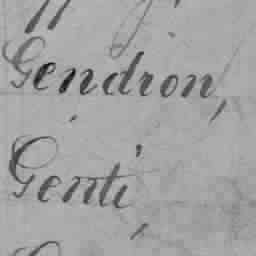 Gendron,
Genti,